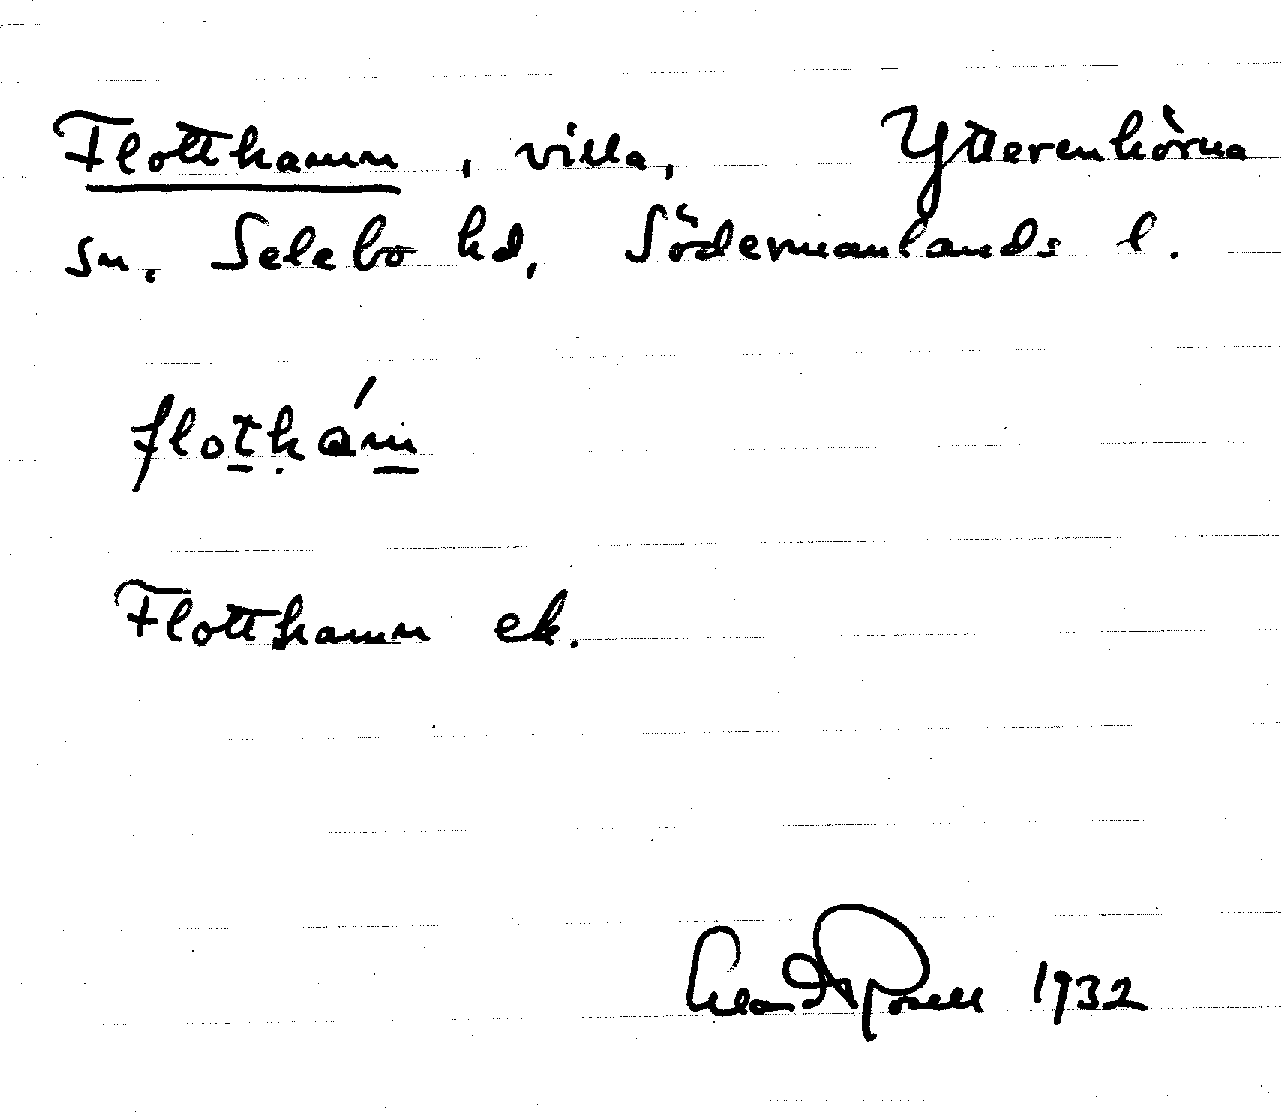 Flotthamn, villa, Ytterenhörna
sn. Selebo hd, Södermanlands l.
flothám
Flotthamn ek.
1932